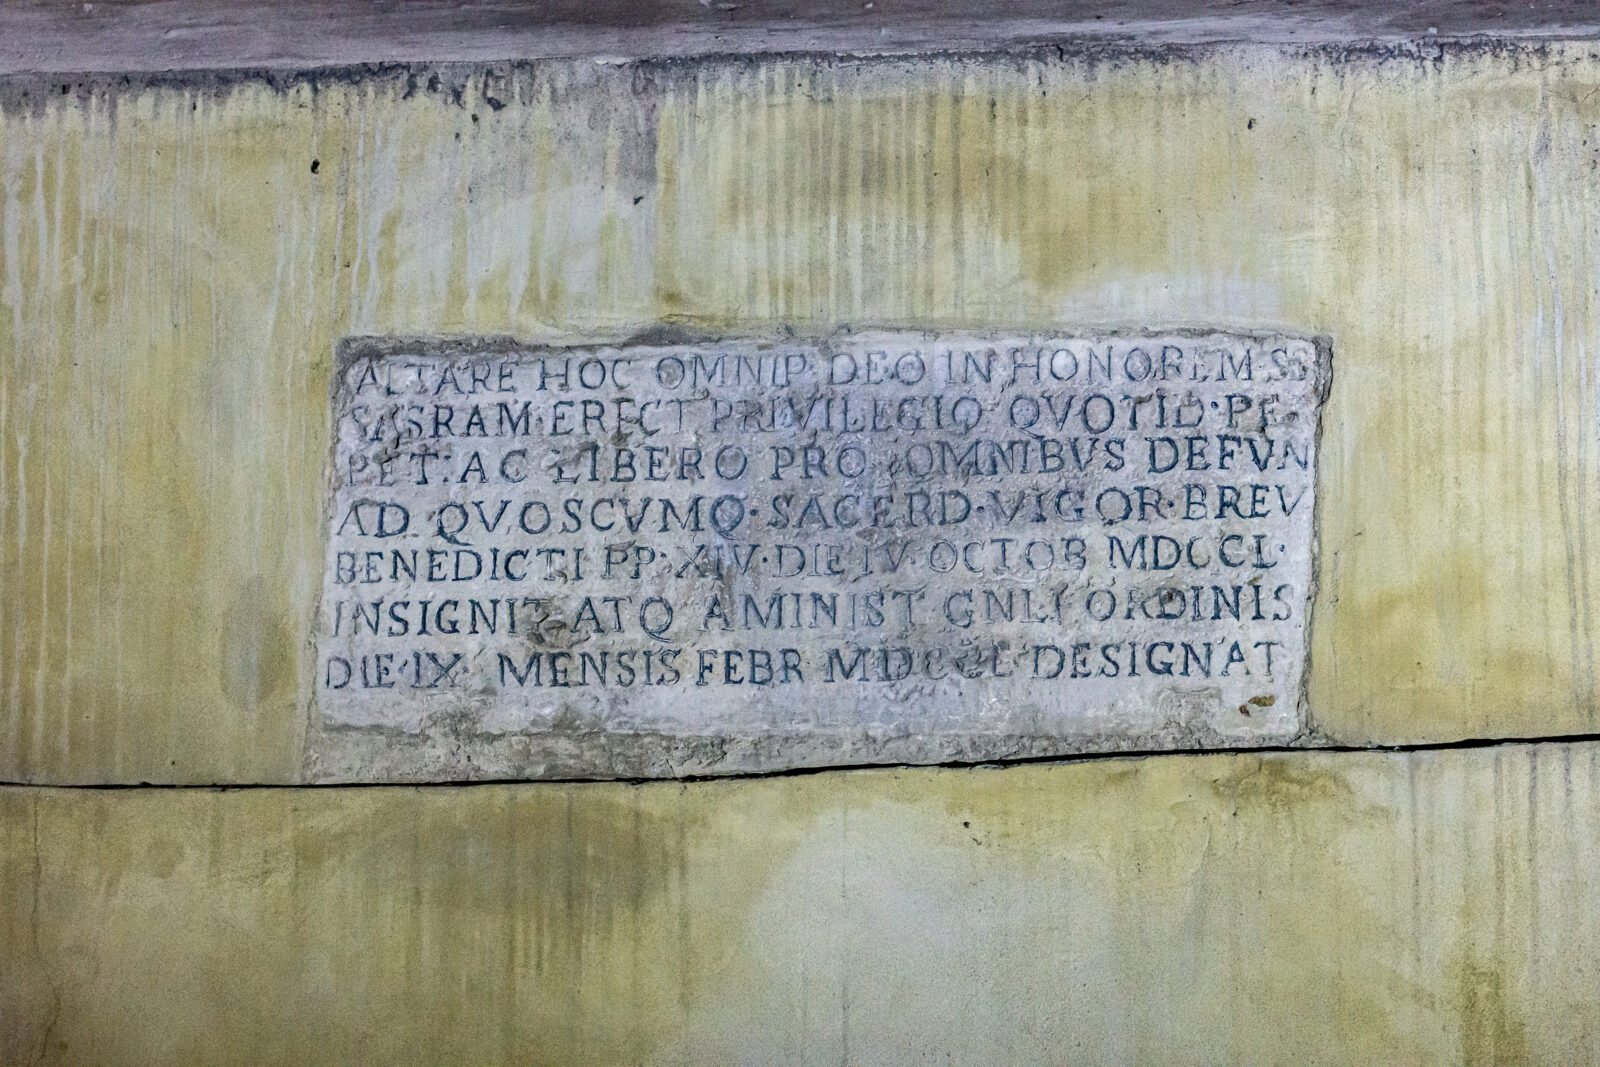 ALTARE HOC OMNIP· DEO IN HONOREM SS
SASRAM·ERECT PRIVILEGIO QVOTID·PE
PET: AC LIBERO PRO OMNIBVS DEFVN
AD QVOSCVMQ·SACERD·VIGOR·BREV
BENEDICTI PP·XIV·DIE IV·OCTOB MDCCL·
INSIGNIT ATQ AMINIST GNLI ORDINIS
DIE·IX· MENSIS FEBR DESIGNAT